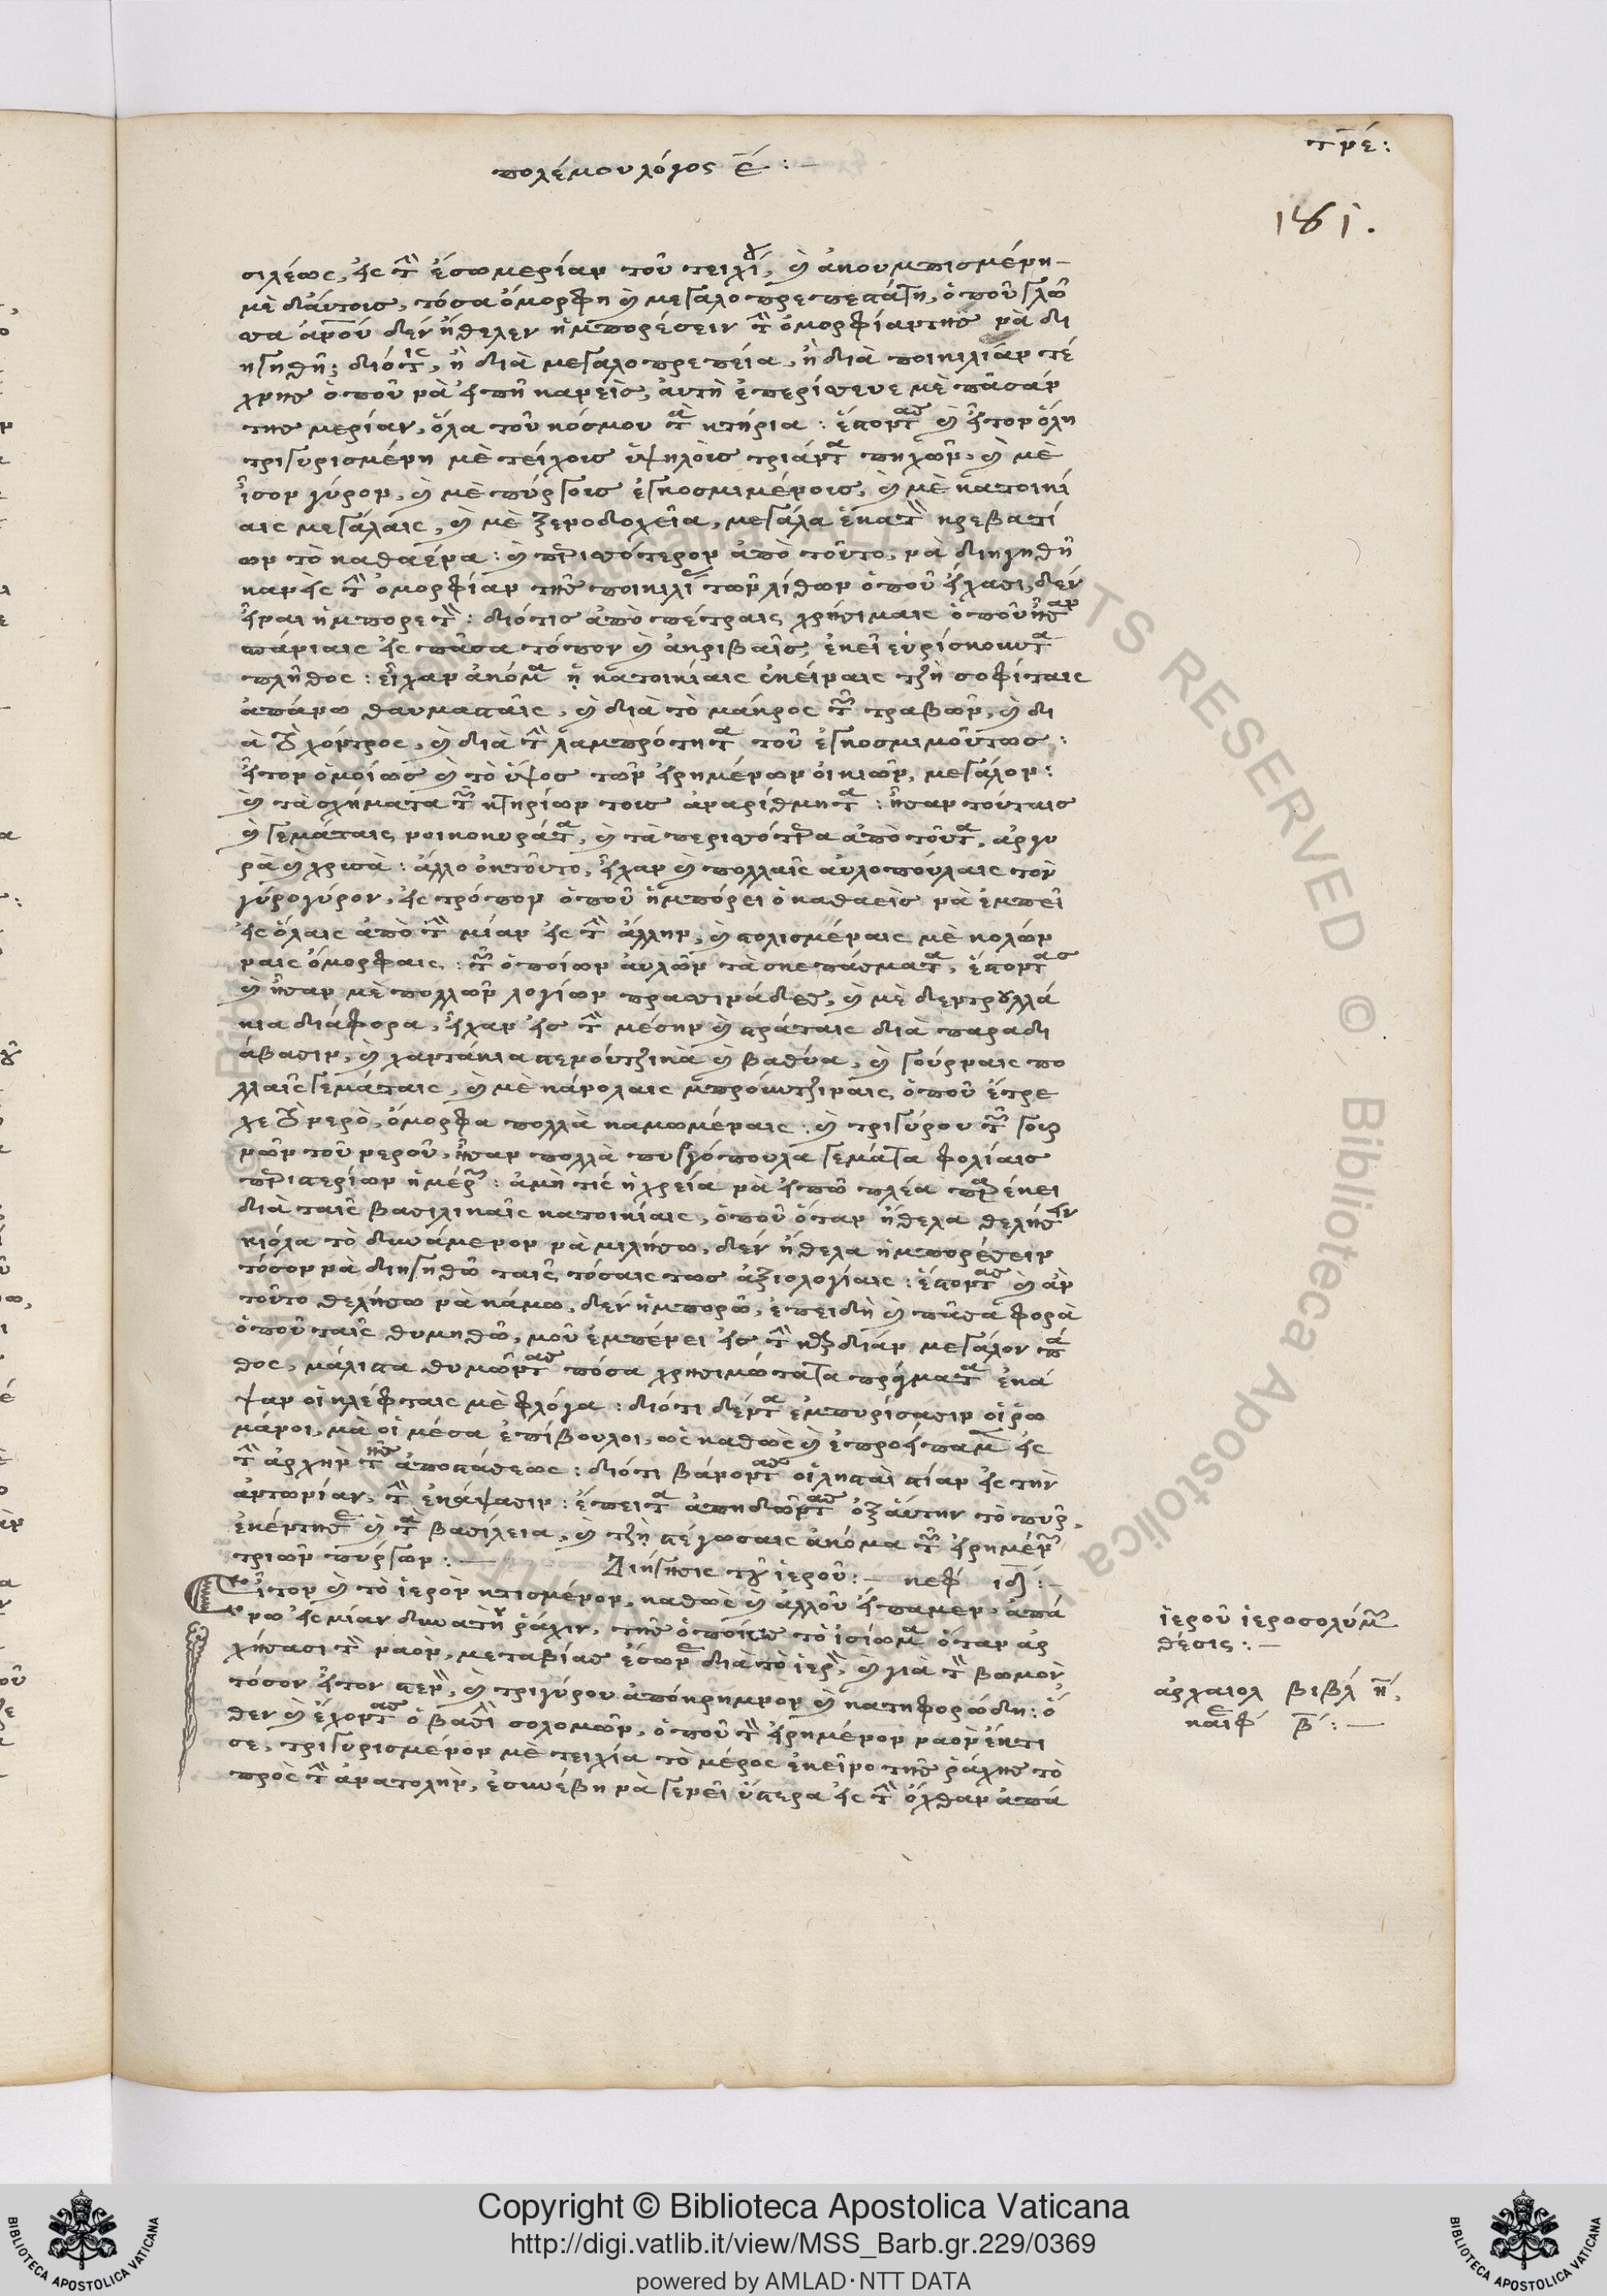 τ̅ρ̅έ:
πολέμου λόγος ε̅:—
181.
σιλέως, εἰς τὴν ἐσωμερίαν τοῦ τειχίου, καὶ ἀκουμπισμένη
μὲ δ᾽αύτοις, τόσα ὄμορφη καὶ μεγαλοπρεπεστάτη, ὁποῦ γλῶ
σσα ἀνοῦ δὲν ἤθελεν ἠμπορέσειν τὴν ὀμορφίαν της νὰ δι
ηγηθῆ; διότις, ἢ διὰ μεγαλοπρεπεία, ἢ διὰ ποικιλίαν τέ
χνης ὁποῦ νὰ εἰπῆ κανεὶς, αὐτὴ ἐπερίσσευε μὲ πᾶσαν
της μερίαν, ὅλα τοῦ κόσμου τὰ κτήρια: ἔστοντας καὶ εἶτον ὅλη
τριγυρισμένη μὲ τείχοις ὑψηλὸις τριάντα πηχῶν, καὶ μὲ
ἴσον γύρον, καὶ μὲ πύργοις ἐγκοσμιμένοις, καὶ μὲ κατοικί
αις μεγάλαις, καὶ μὲ ξενοδοχεῖα, μεγάλα ἑκατὸν κρεβατί
ων τὸ καθαένα: καὶ περισσότερον ἀπὸ τοῦτο, νὰ διηγηθῆ
κὰν εἰς τὴν ὀμορφίαν τῆς ποικιλίας τῶν λίθων ὁποῦ εἴχασι, δὲν
εἶναι ἠμπορετὸν: διότις ἀπὸ πέτραις χρήσιμαις ὁποῦ ἦσαν
σπάνιαις εἰς πᾶσα τόπον καὶ ἀκριβαῖς, ἐκεῖ εὑρίσκοντα
πλῆθος: εἶχαν ἀκόμα ἡ κατοικίαις ἐκείναις τζὴ σοφίταις
ἀπάνω θαυμασταῖς, καὶ διὰ τὸ μάκρος τῶν τραβῶν, καὶ δι
ὰ τὸ χόντρος, καὶ διὰ τὴν λαμπρότητα τοῦ ἐγκοσμιμοῦτως:
εἶτον ὁμοίως καὶ τὸ ὕψος τῶν εἰρημένων οἰκιῶν, μεγάλον:
καὶ τὰ σχήματα τῶν κτηρίων τοις ἀναρίθμητα: ἦσαν τούταις
καὶ γεμάταις νοικοκυράτα, καὶ τὰ περισσότερα ἀπὸ τοῦτα, ἀργυ
ρὰ καὶ χρισὰ: ἄλλο ὀκτοῦτο, εἶχαν καὶ πολλαῖς αὐλοπούλαις τὸν
γύρογύρον, εἰς τρόπον ὁποῦ ἠμπόρει ὁ καθαεὶς νὰ ἐμπεῖ
εἰς ὅλαις ἀπὸ τὴν μίαν εἰς τὴν ἄλλην, καὶ στολισμέναις μὲ κολών
ναις ὄμορφαις: τῶν ὁποίων αὐλῶν τὰ σκεπάσματα, ἔστοντας
καὶ ἦσαν μὲ πολλῶν λογίων πρασινάδες, καὶ μὲ δεντρουλλά
κια διάφορα, εἶχαν εἰς τὴν μέσην καὶ στράταις διὰ παραδι
άβασιν, καὶ χαντάκια στερούτζικὰ καὶ βαθύα, καὶ γούρναις πο
λλαῖς γεμάταις, καὶ μὲ κάνολαις μπρούντζιναις, ὁποῦ ἔτρε
χε τὸ νερὸ, ὄμορφα πολλὰ καμωμέναις: καὶ τριγύρου τῶν γουρ
νῶν τοῦ νεροῦ, ἦσαν πολλὰ πυργόπουλα γεμάτα φολίαις
περιστερίων ἡμέρων: ἀμὴ τίς ἡ χρεία νὰ εἰπῶ πλέα παρέκει
διὰ ταῖς βασιλικαῖς κατοικίαις, ὁποῦ ὅταν ἤθελα θελήσειν
κιόλα τὸ δυνάμενον νὰ μιλήσω, δὲν ἤθελα ἠμπορέσειν
τόσον νὰ διηγηθῶ ταῖς τόσαις τως ἀξιολογίαις: ἔστοντας καὶ ἀν
τοῦτο θελήσω νὰ κάμω, δὲν ἠμπορῶ, ἐπειδὴ καὶ πᾶσα φορὰ
ὁποῦ ταῖς θυμηθῶ, μοῦ ἐμπένει εἰς τὴν καρδιάν μεγάλον πά
θος, μάλιστα θυμῶντας πόσα χρησιμώτατα πράγματα ἐκά
ψαν οἱ κλέφταις μὲ φλόγα: διότι δὲν τὰ ἐμπυρίσασιν οἱ ῥω
μάνοι, μὰ οἱ μέσα ἐπίβουλοι, ὡς καθὼς καὶ ἐπροείπαμεν εἰς
τὴν ἀρχὴν τῆς ἀποστάσεως: διότι βάνοντας οἱ λησταὶ στίαν εἰς τὴν
ἀντωνίαν, τὴν ἐκάψασιν: ἔπειτα ἀπηδῶντας ὀξαύτην τὸ πῦρ,
ἐκέντησε καὶ τὰ βασίλεια, καὶ τζὴ στέγωσαις ἀκόμα τῶν εἰρημένων
τριῶν πύργων:— Διήγησις τοῦ ἱεροῦ:— κεφ ιδ:—
Εἶτον καὶ τὸ ἱερὸν κτισμένον, καθὼς καὶ ἀλλοῦ εἴπαμεν, ἀπά
νω εἰς μίαν δυνατὴν ῥάχιν, τῆς ὁποίας τὸ ἰσίωμα ὅταν ἀρ
χήσασι τὸν ναὸν, μεταβίας ἔσωνε διὰ τὸ ἱερὸν, καὶ γιὰ τὸν βωμὸν
τόσον εἶτον στενὸν, καὶ τριγύρου ἀπόκρημνον καὶ κατηφορώδη: ὅ
θεν καὶ ἔχοντας ὁ βασιλεὺς σολομῶν, ὁποῦ τὸν εἰρημένον ναὸν ἔκτι
σε, τριγυρισμένον μὲ τειχία τὸ μέρος ἐκεῖνο τῆς ῥάχης τὸ
πρὸς τὴν ἀνατολὴν, ἐσυνέβη νὰ γενεῖ ὕστερα εἰς τὴν ὄχθαν ἀπά
ἱεροῦ ἱεροσολύμων
θέσις:—
ἀρχαιολ βιβλ η̅,
καὶ κεφ β̅:—
Copyright © Biblioteca Apostolica Vaticana
http://digi.vatlib.it/view/MSS_Barb.gr.229/0369
powered by AMLAD·NTT DATA
BIBLIOTECA APOSTOLICA VATICANA
BIBLIOTECA APOSTOLICA VATICANA